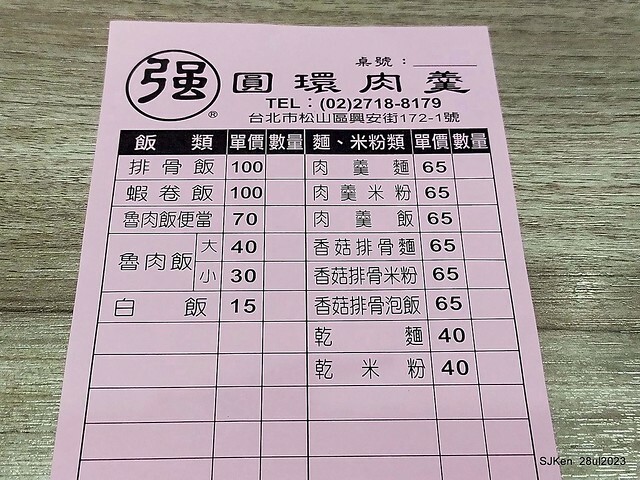 桌號：
强 圓環肉羹
®
TEL：(02)2718-8179
台北市松山區興安街172-1號
飯類 單價 數量 麵、米粉類 單價 數量
排骨飯 100 肉羹麵 65
蝦卷飯 100 肉羹米粉 65
魯肉飯便當 70 肉羹飯 65
魯肉飯 大 40 香菇排骨麵 65
小 30 香菇排骨米粉 65
白飯 15 香菇排骨泡飯 65
乾麵 40
乾米粉 40
SJKen 28ul2023